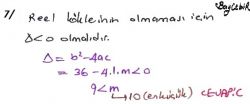 BayCebir
7/ Reel köklerinin olmaması için
Δ<0 olmalıdır.
Δ = b²-4ac
= 36-4.1.m<0
9<m
→10 (en küçük) CEVAP: C